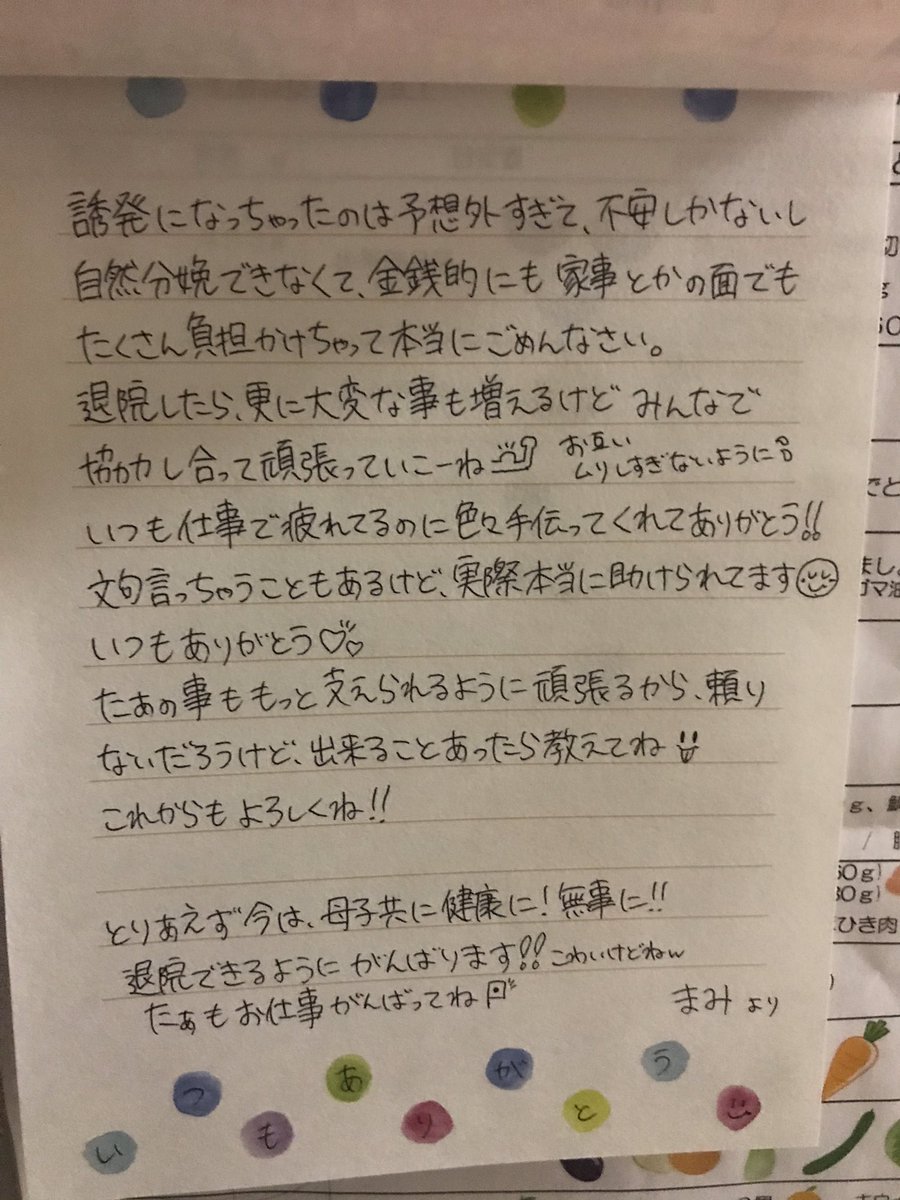 誘発になっちゃったのは予想外すぎて、不安しかないし
自然分娩できなくて、金銭的にも 家事とかの面でも
たくさん負担かけちゃって本当にごめんなさい。
退院したら、更に大変な事も増えるけど みんなで
協力し合って頑張っていこーね
お互い
ムリしすぎないように
いつも仕事で疲れてるのに色々手伝ってくれてありがとう!!
文句言っちゃうこともあるけど、実際本当に助けられてます
いつもありがとう♡
たぁの事ももっと支えられるように頑張るから、頼り
ないだろうけど、出来ることあったら教えてね
これからもよろしくね!!
とりあえず今は、母子共に健康に!無事に!!
退院できるように がんばります!! こわいけどねw
たぁもお仕事がんばってね
まみ より
いつもありがとう
切
g
でと
まし。
ゴマ油
g、
/
60g)
30g)
ひき肉